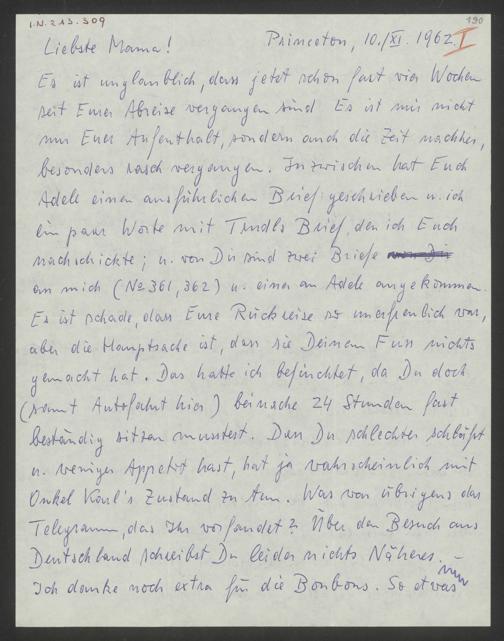 I.N. 213.309
190
Liebste Mama! Princeton, 10./XI. 1962. I
Es ist unglaublich, dass jetzt schon fast vier Wochen
seit Eurer Abreise vergangen sind. Es ist mir nicht
nur Euer Aufenthalt, sondern auch die Zeit nachher,
besonders rasch vergangen. Inzwischen hat Euch
Adele einen ausführlichen Brief geschrieben u. ich
ein paar Worte mit Trudls Brief, den ich Euch
nachschickte; u. von Dir sind zwei Briefe
an mich (No 361, 362) u. einer an Adele angekommen.
Es ist schade, dass Eure Rückreise so unerfreulich war,
aber die Hauptsache ist, dass sie Deinem Fuss nichts
gemacht hat. Das hatte ich befürchtet, da Du doch
(samt Autofahrt hier) beinahe 24 Stunden fast
beständig sitzen musstest. Dass Du schlechter schläfst
u. weniger Appetit hast, hat ja wahrscheinlich mit
Onkel Karl's Zustand zu tun. Was war übrigens das
Telegramm, das Ihr vorfandet? Über den Besuch aus
Deutschland schreibst Du leider nichts Näheres. –
Ich danke noch extra für die Bonbons. So etwas